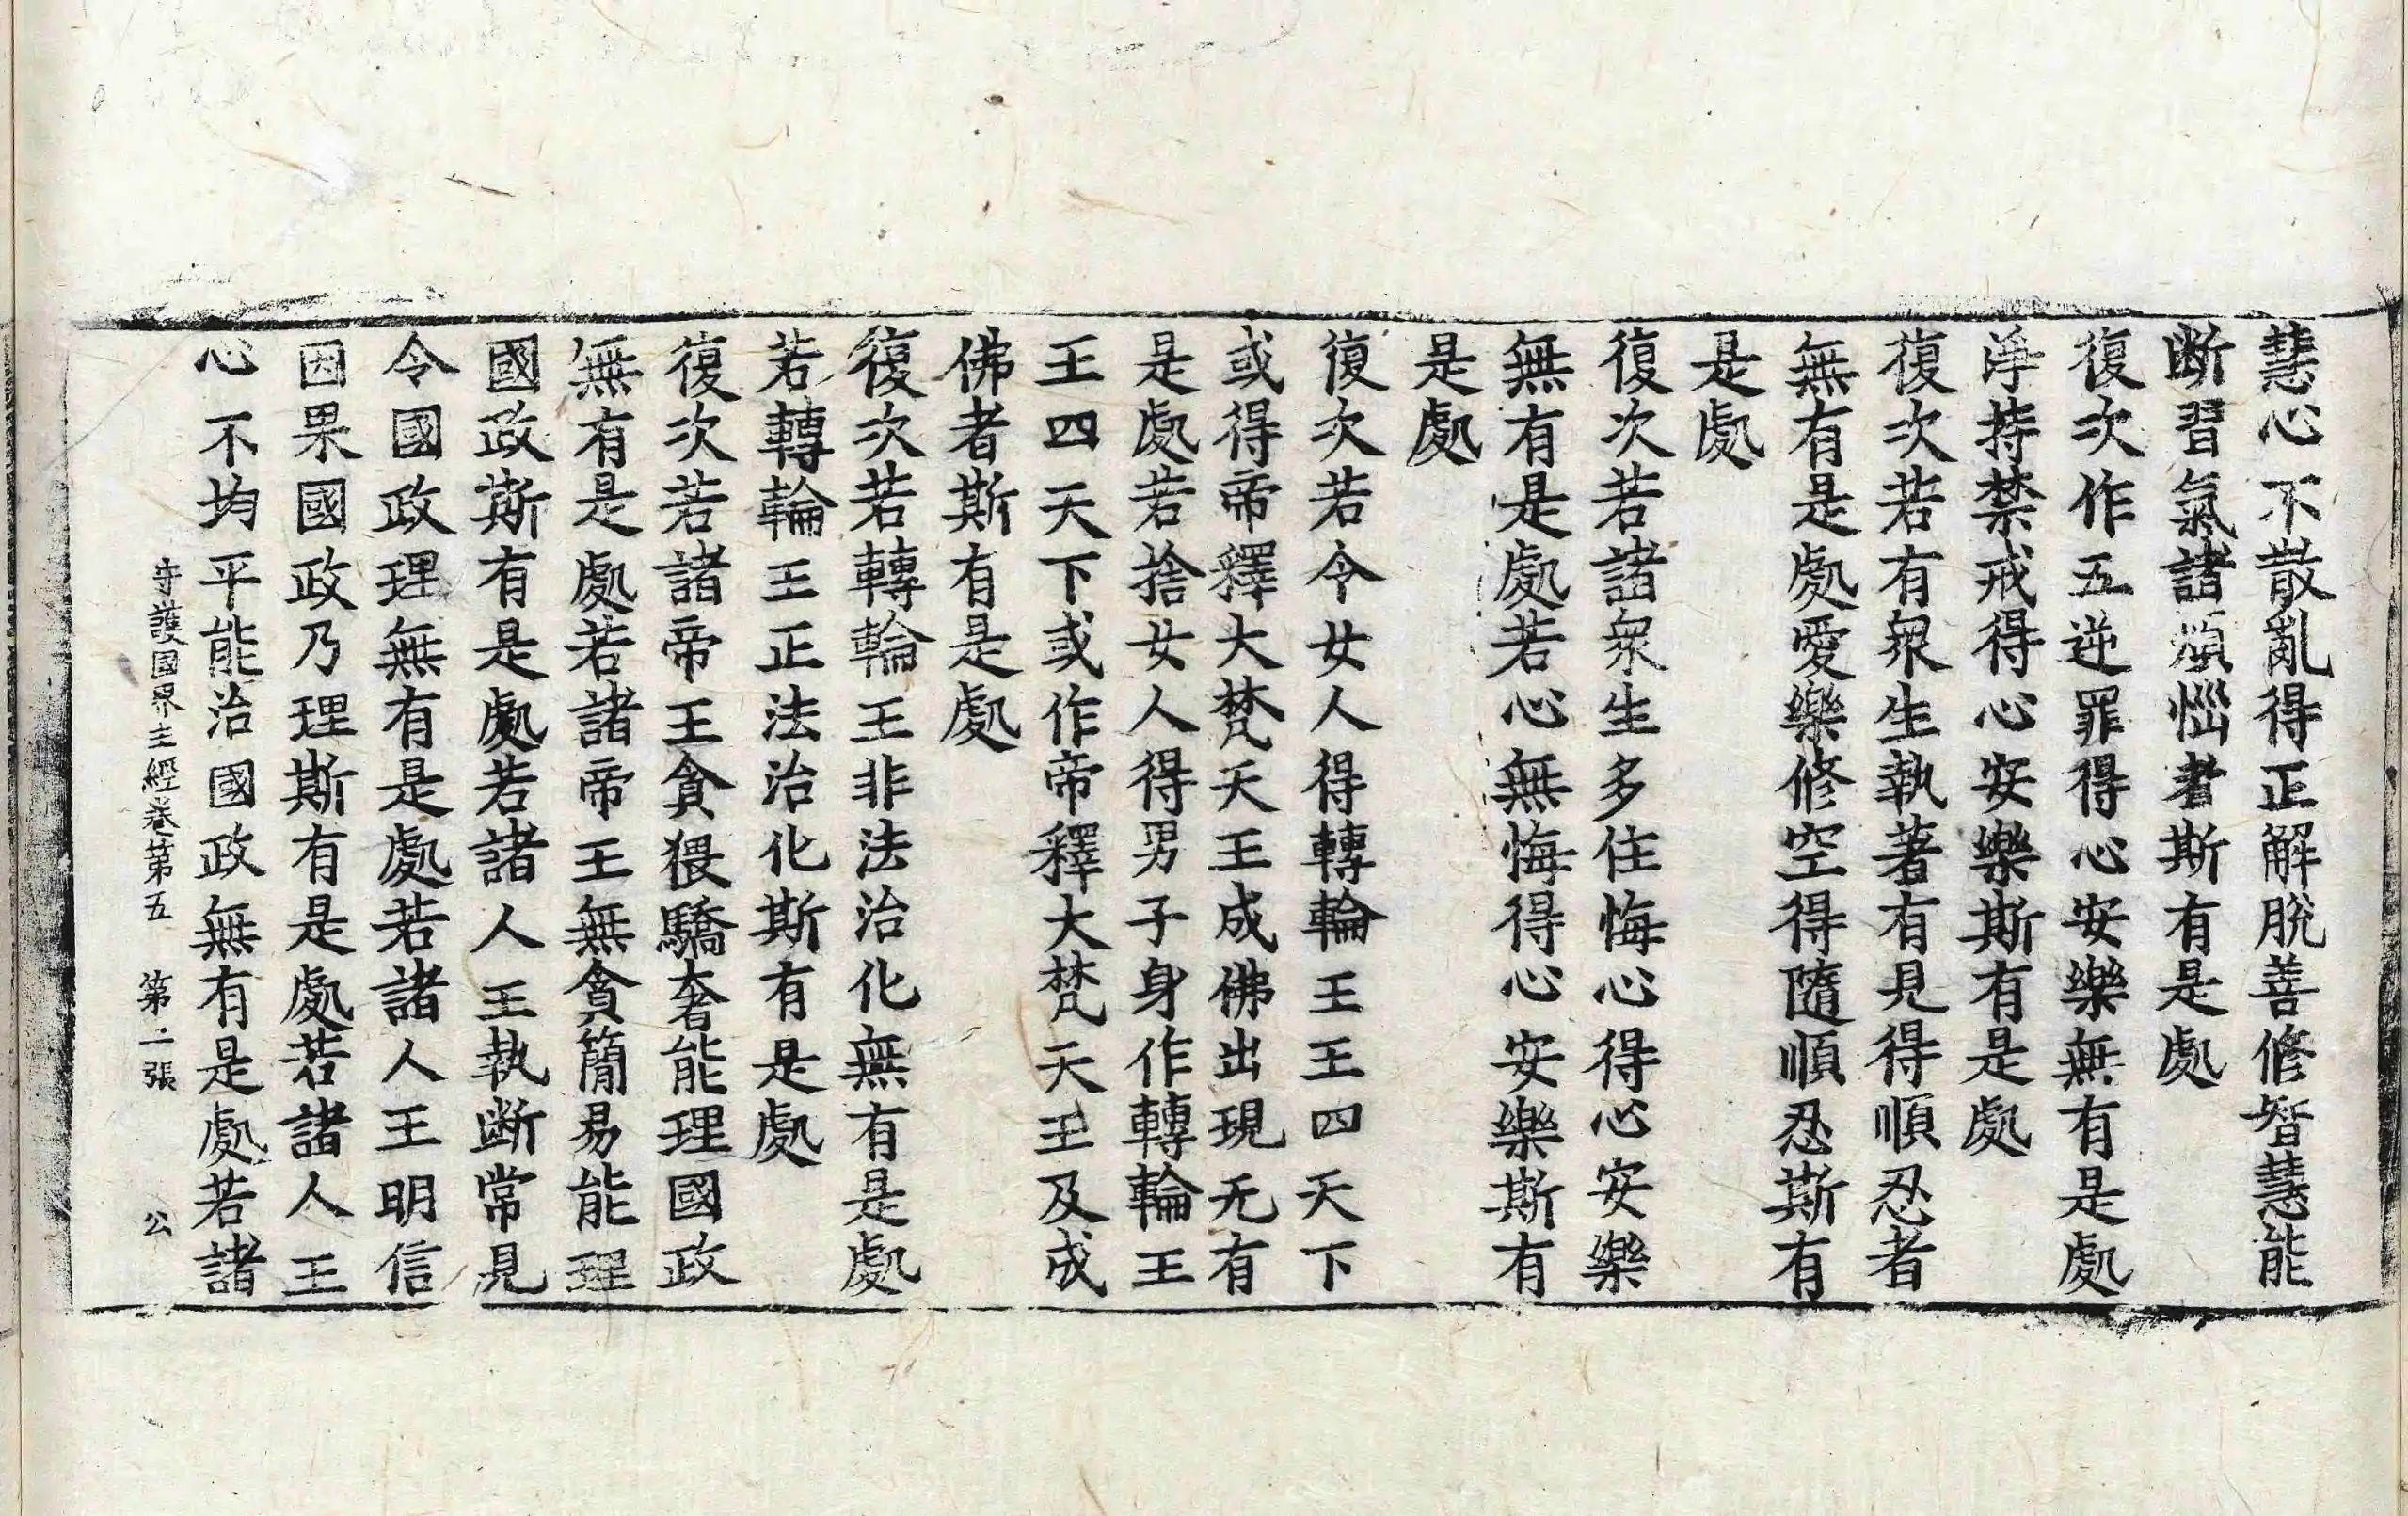 慧心不散亂得正解脫善修智慧能
断習氣諸煩惱者斯有是處
復次作五逆罪得心安樂無有是處
淨持禁戒得心安樂斯有是處
復次若有衆生執著有見得順忍者
無有是處愛樂修空得隨順忍斯有
是處
復次若諸衆生多住悔心得心安樂
無有是處若心無悔得心安樂斯有
是處
復次若令女人得轉輪王王四天下
或得帝釋大梵天王成佛出現无有
是處若捨女人得男子身作轉輪王
王四天下或作帝釋大梵天王及成
佛者斯有是處
復次若轉輪王非法治化無有是處
若轉輪王正法治化斯有是處
復次若諸帝王貪猥驕奢能理國政
無有是處若諸帝王無貪簡易能理
國政斯有是處若諸人王執断常見
令國政理無有是處若諸人王明信
因果國政乃理斯有是處若諸人王
心不均平能治國政無有是處若諸
守護國界主經卷第五 第二張 公